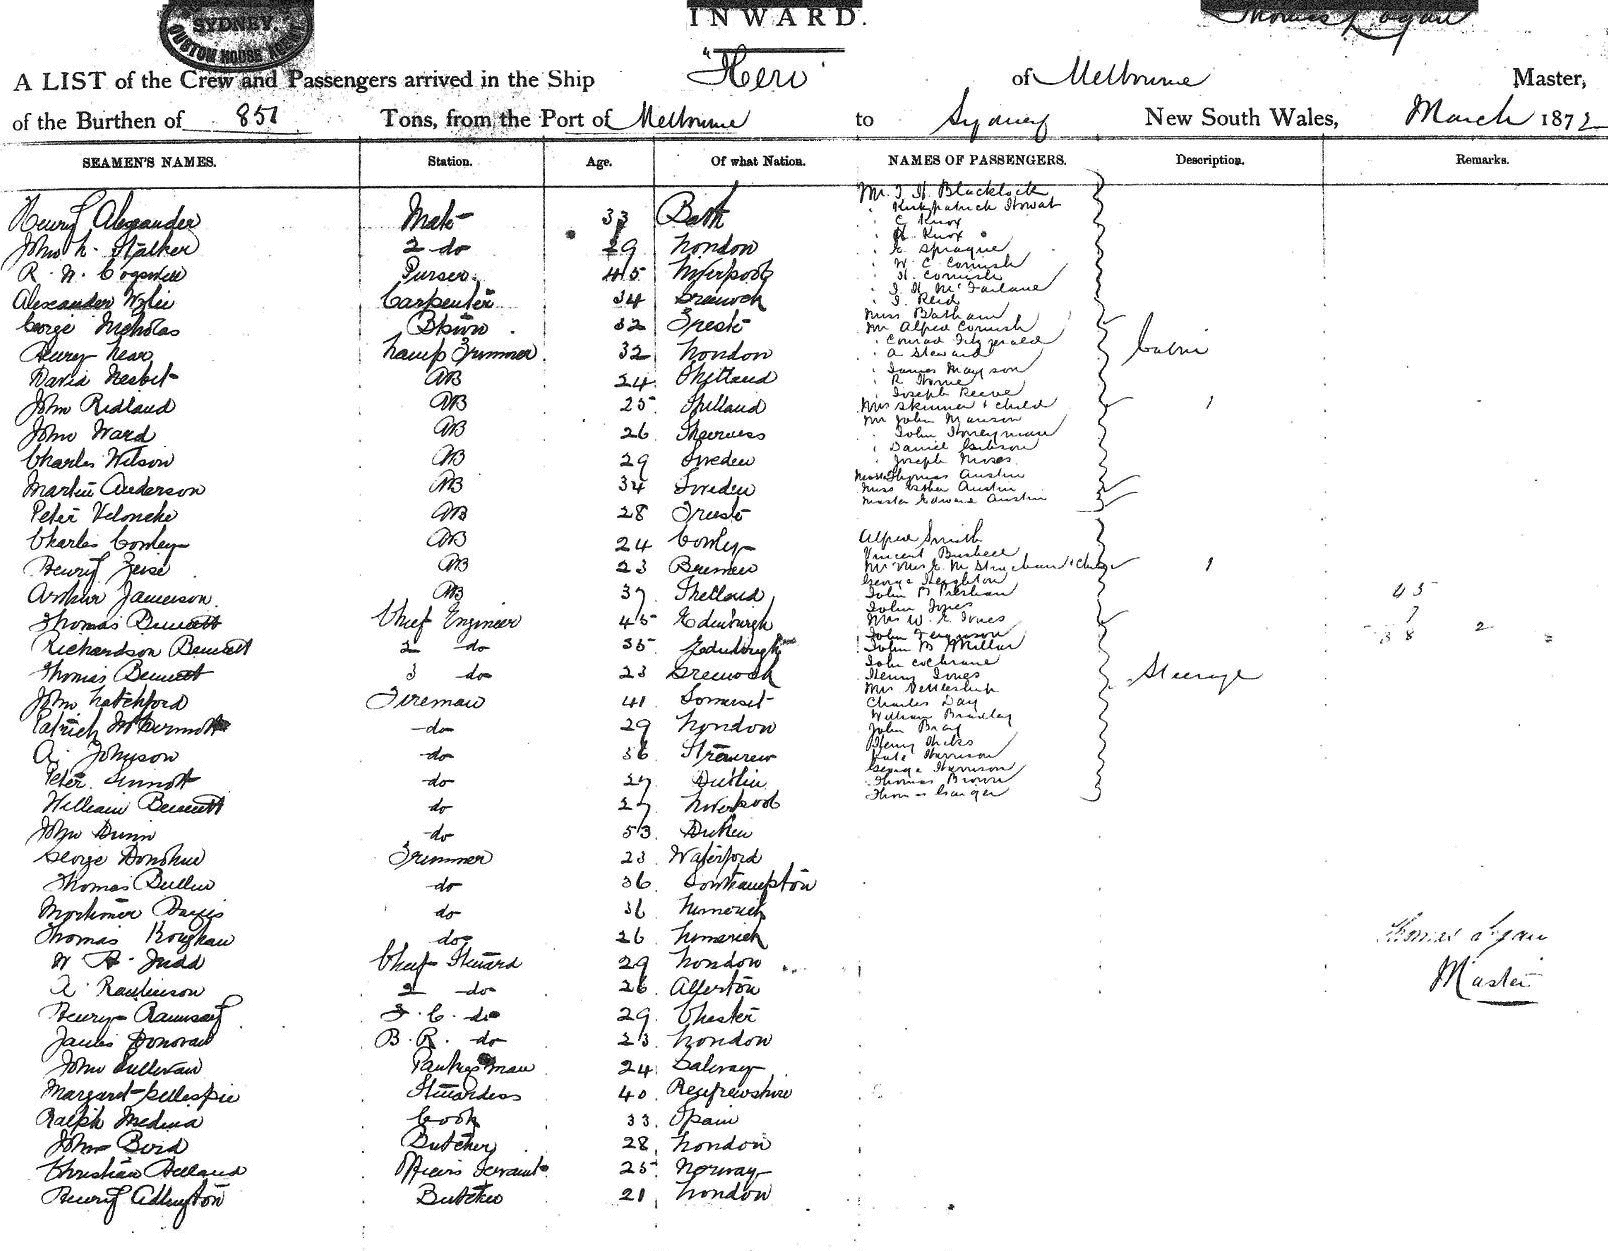 SYDNEY
CUSTOM HOUSE
INWARD.
Thomas Logan
A LIST of the Crew and Passengers arrived in the Ship "Hero" of Melbourne Master,
of the Burthen of 851 Tons, from the Port of Melbourne to Sydney New South Wales, March 1872
SEAMEN'S NAMES. Station. Age. Of what Nation. NAMES OF PASSENGERS. Description. Remarks.
Henry Alexander Mate 33 Bath
John Stalker 2 do 29 London
R. N. Cogswell Purser 45 Liverpool
Alexander Wylie Carpenter 34 Greenock
George Nicholas 32 Trieste
Henry Near Lamp Trimmer 32 London
David Nesbit AB 24 Shetland
John Ridland AB 25 Shetland
John Ward AB 26
Charles Wilson AB 29 Sweden
Martin Anderson AB 34 Sweden
Peter AB 28 Trieste
Charles Conley AB 24
Henry Zeise AB 23 Bremen
Arthur Jamieson AB 37 Shetland
Thomas Bennett Chief Engineer 45 Edinburgh
Richardson Bennett 2 do 35 Edinburgh
Thomas Bennett 3 do 23 Greenock
John Latchford Fireman 41 Somerset
Patrick McDermott do 29 London
A. Johnson do 36
Peter Sinnott do 27 Dublin
William Bennett do 27 Liverpool
John Dunn do 53
George Donohue Trimmer 23 Waterford
Thomas Bullen do 36 Southampton
Mortimer do 36 Limerick
Thomas do 26 Limerick
W. H. Judd Chief Steward 29 London
A. Rawlinson 2 do 26
Henry Ramsay F. C. do 29 Chester
James Donovan B. R. do 23 London
John Sullivan Pantry man 24 Galway
Margaret Gillespie Stewardess 40 Renfrewshire
Ralph Medina Cook 33 Spain
John Bird Butcher 28 London
Christian Officers Servant 25 Norway
Henry Adlington Butcher 21 London
Mr. T. H. Blacklock
" Kirkpatrick Howat
" C Knox
" H. Knox
" E Sprague
" W. C. Cornish
" H. Cornish
" J. H. McFarlane
" J. Reid
Miss Batham
Mr Alfred Cornish
" Conrad Fitzgerald
" A Steward
" James Mayson
" R Horne
" Joseph Reeve
Mrs Skinner + child 1
Mr John Manson
" John Honeyman
" Daniel Gibson
" Joseph Moses
Thomas Austin
Miss Esther Austin
Master Edward Austin
Cabin
Alfred Smith
Vincent Bushell
Mr Mrs E. M. Strachan + child 1
George Heighton
John
John Jones
Mrs W. E. Jones
John Ferguson
John B McMillan
John Cochrane
Henry Jones
Mrs
Charles Day
William Bradley
John Bray
Henry Hicks
Kate Harrison
George Harrison
Thomas Brown
Steerage
45
38 2
Thomas Logan
Master